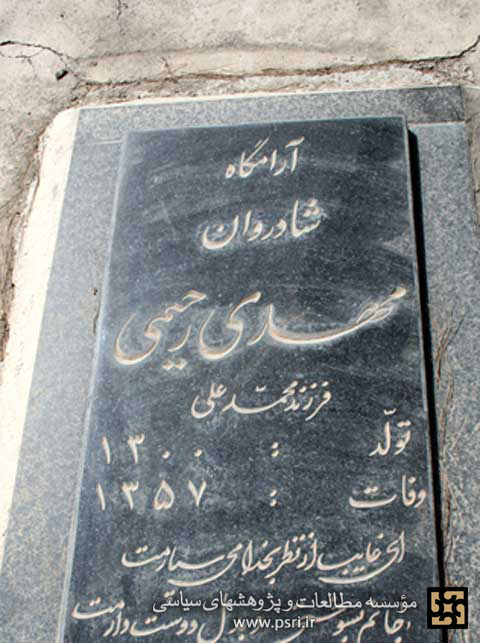 آرامگاه
شادروان
مهدی رحیمی
فرزند محمد علی
تولّد : ۱۳۰۰
وفات : ۱۳۵۷
ای غایب از نظر بخدا می سپارمت
جانم بسوختی بدل دوست دارمت
مؤسسه مطالعات و پژوهشهای سیاسی
www.psri.ir